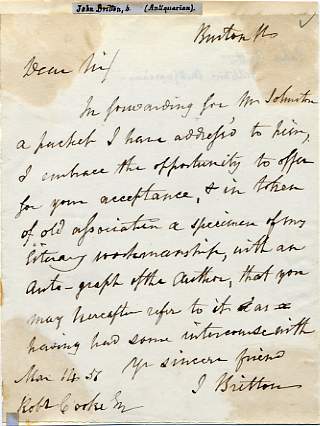 John Britton, b. (Antiquarian).
Burton St
Dear Sir/
In forwarding for Mr Johnston
a packet I have address'd to him,
I embrace the opportunity to offer
for your acceptance, & in token
of old association a specimen of my
literary workmanship, with an
Auto-graph of the Author, that you
may hereafter refer to it as
having had some intercourse with
Yr sincere friend
Mar 14 51
J Britton
Robt Cooke Esq